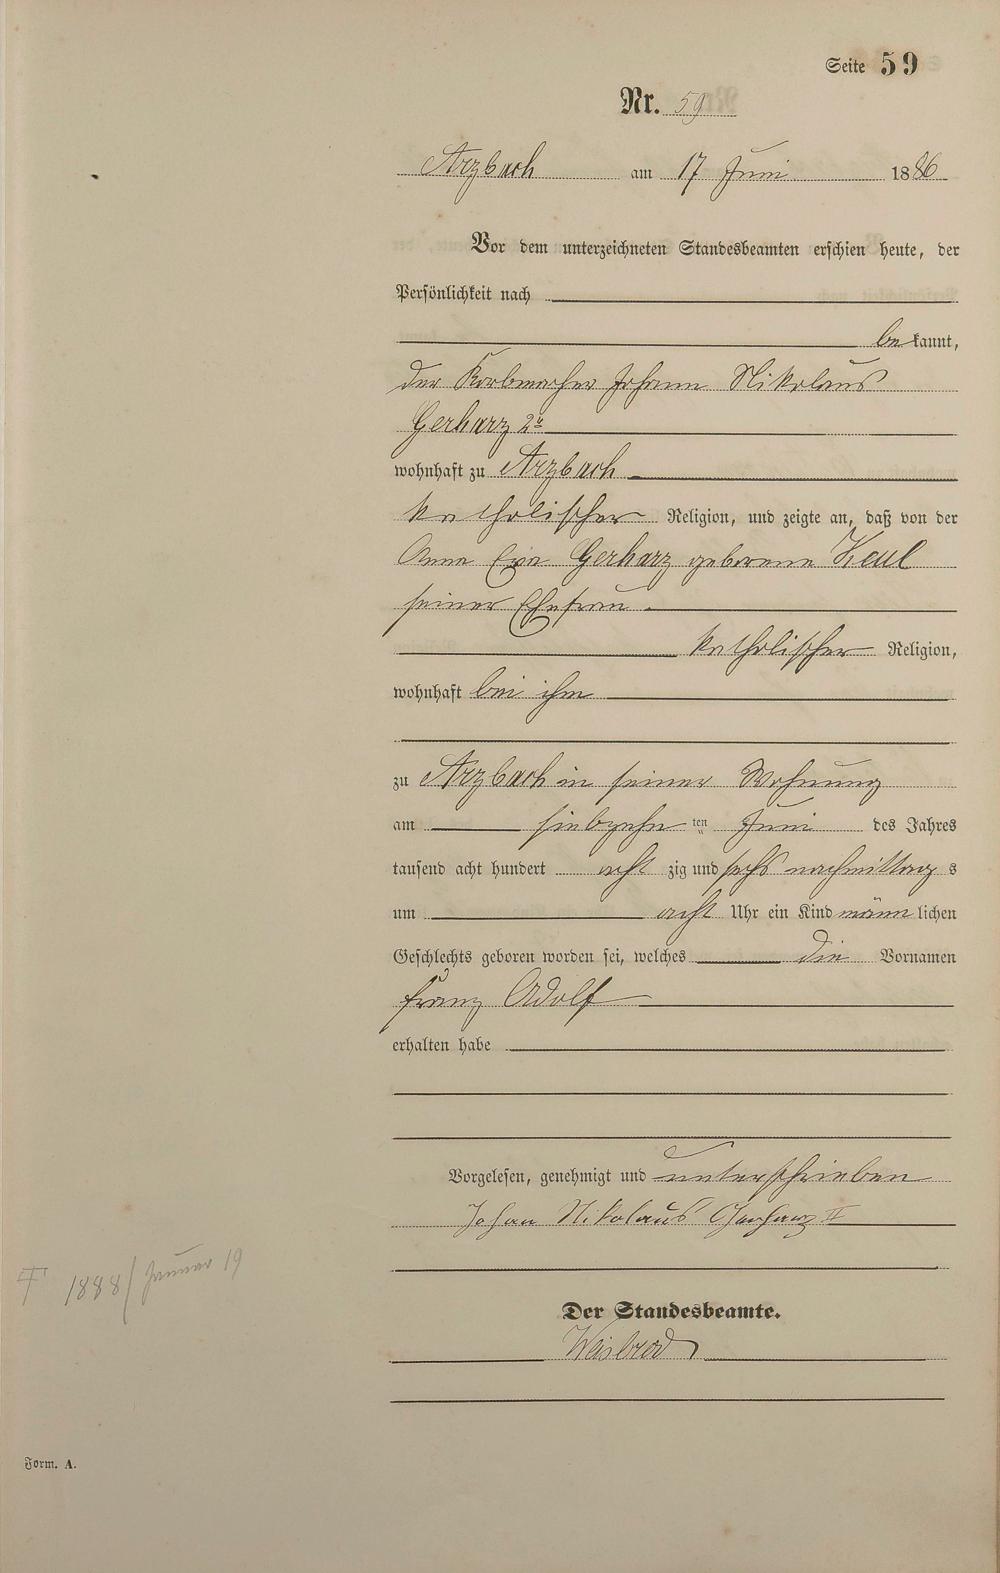 Seite 59
Nr. 59
Arzbach am 17 Juni 1886
Vor dem unterzeichneten Standesbeamten erschien heute, der
Persönlichkeit nach
bekannt,
der Korbmacher Johann Nikolaus
Gerharz 2r
wohnhaft zu Arzbach
katholischer Religion, und zeigte an, daß von der
Anna Eva Gerharz geborene Keul
seiner Ehefrau
katholischer Religion,
wohnhaft bei ihm
zu Arzbach in seiner Wohnung
am siebzehnten Juni des Jahres
tausend acht hundert achtzig und sechs nachmittags
um acht Uhr ein Kind männlichen
Geschlechts geboren worden sei, welches die Vornamen
Franz Adolf
erhalten habe
Vorgelesen, genehmigt und unterschrieben
Johan Nikolaus Gerharz II
1888/Januar 19
Der Standesbeamte.
Weisbrod
Form. A.